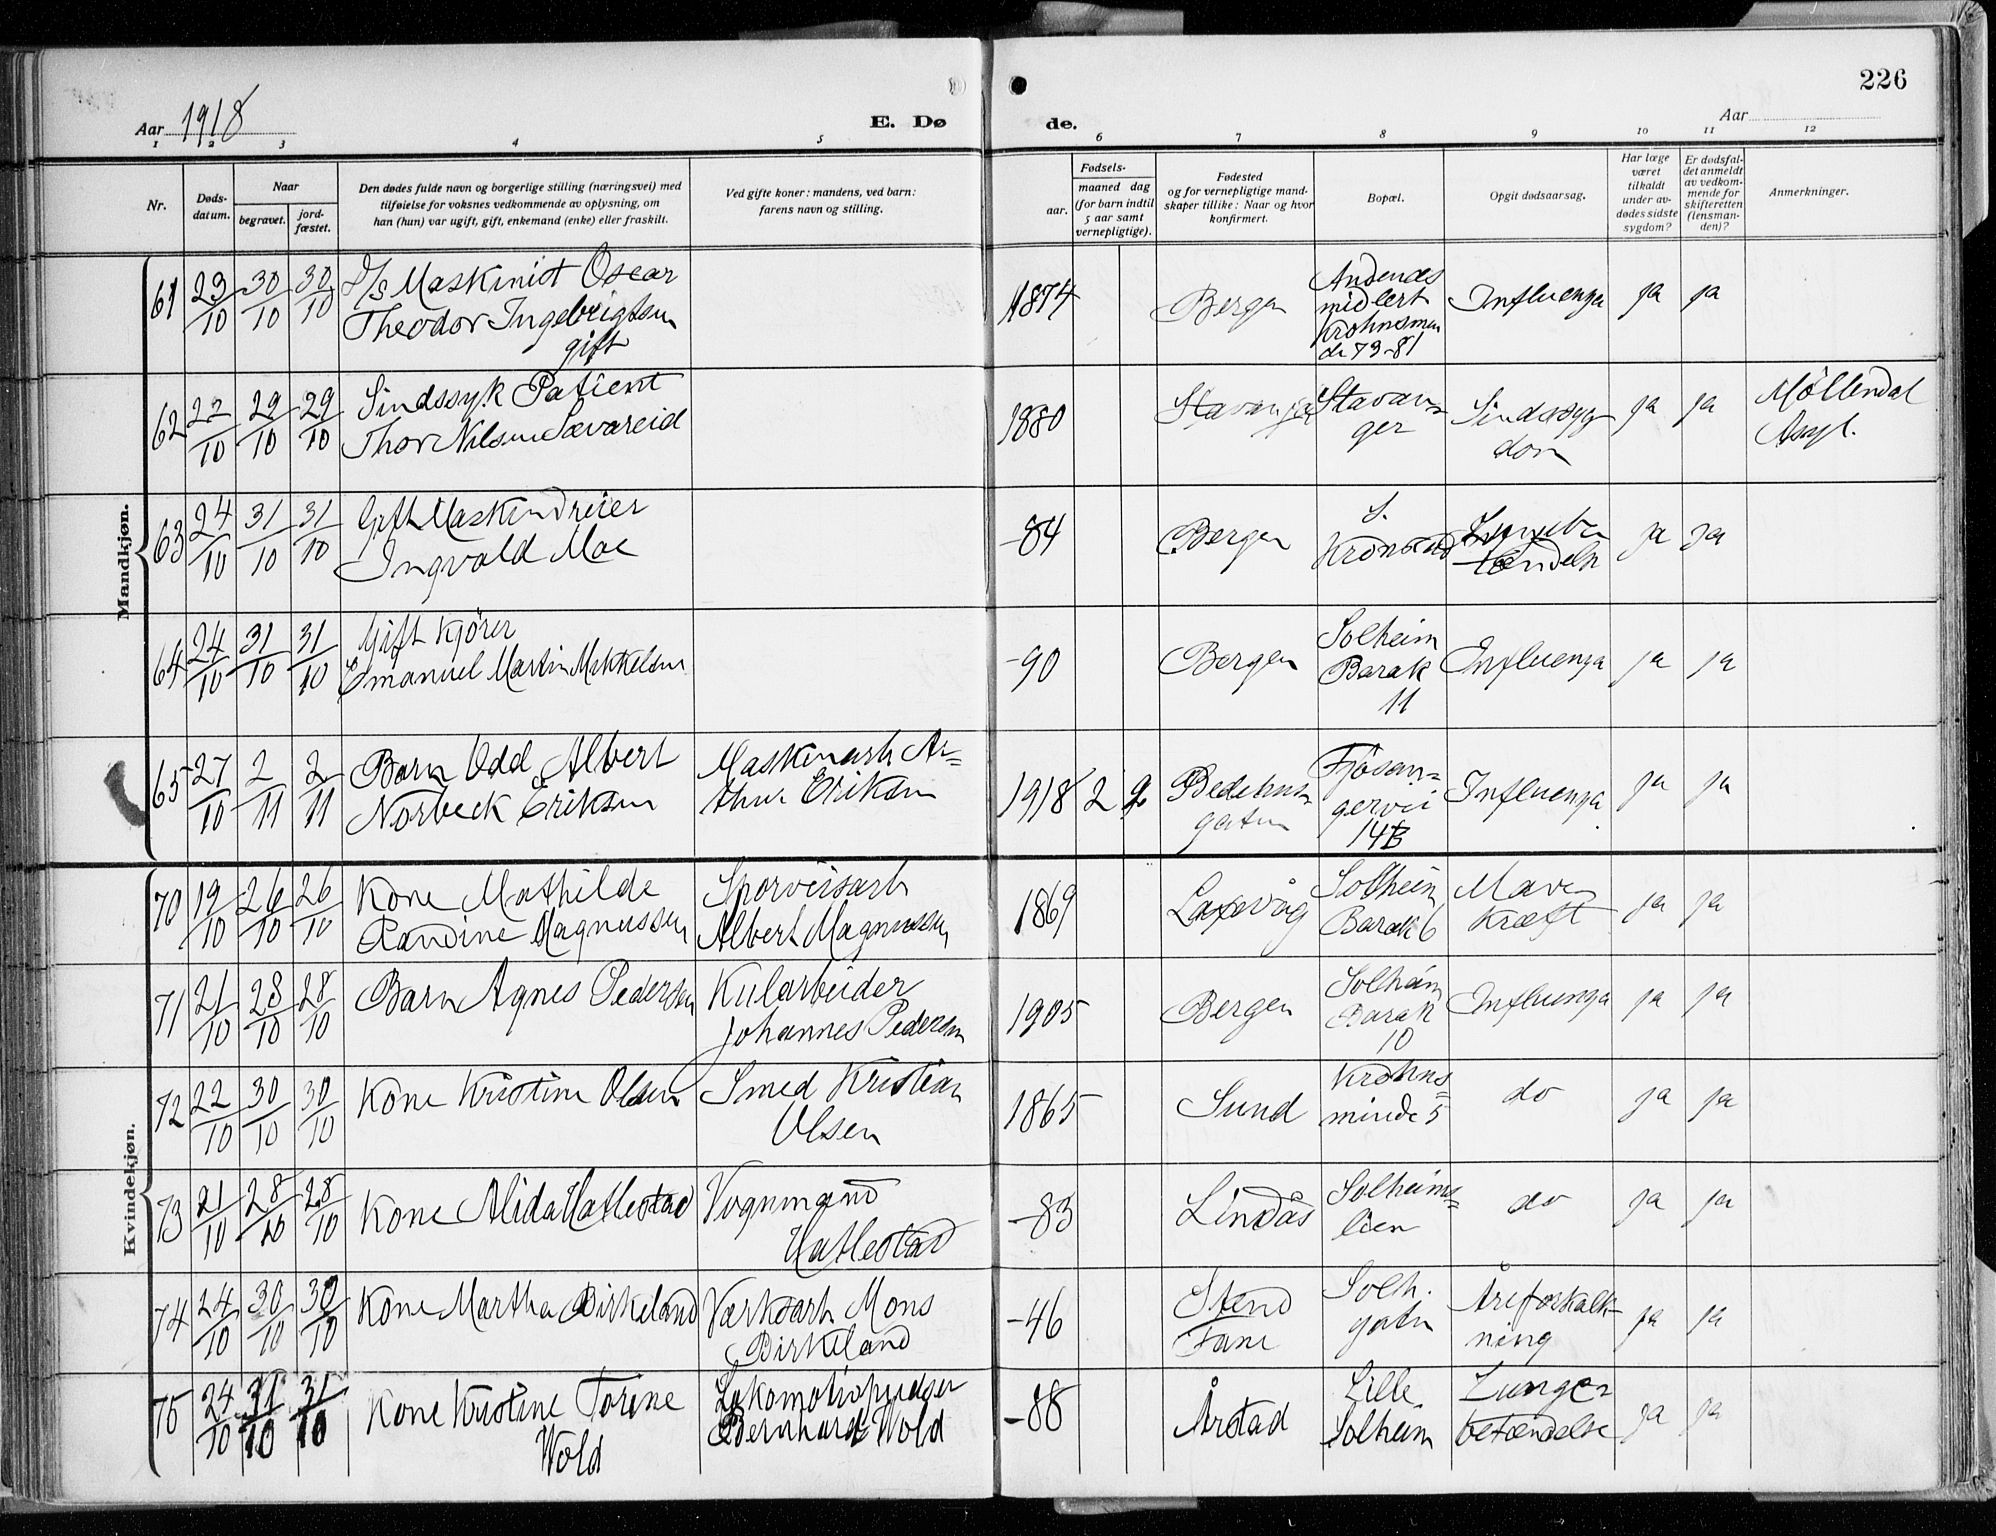 226
Aar 1918
E. Dø de.
Aar
1 2 3 4 5 6 7 8 9 10 11 12
Nr.
Døds-
datum.
Naar
begravet.
jord-
fæstet.
Den dødes fulde navn og borgerlige stilling (næringsvei) med
tilføielse for voksnes vedkommende av oplysning, om
han (hun) var ugift, gift, enkemand (enke) eller fraskilt.
Ved gifte koner: mandens, ved barn:
farens navn og stilling.
Fødsels-
aar.
maaned dag
(for barn indtil
5 aar samt
vernepligtige).
Fødested
og for vernepligtige mand-
skaper tillike: Naar og hvor
konfirmert.
Bopæl.
Opgit dødsaarsag.
Har læge
været
tilkaldt
under av-
dødes sidste
sygdom?
Er dødsfal-
det anmeldt
av vedkom-
mende for
skifteretten
(lensman-
den)?
Anmerkninger.
Mandkjøn.
61 23/10 30/10 30/10
D/S Maskinist Oscar
Theodor Ingebrigtsen
gift
1874 Bergen
Andenæs
midlert
Krohnsmin
de 73-81
Influenza ja ja
62 22/10 29/10 29/10
Sindssyk Patient
Thor Nilsen Sævareid
1880 Stavanger
Stavan=
ger
Sindssyg
dom
ja ja
Møllendal
Asyl.
63 24/10 31/10 31/10
Gift Maskindreier
Ingvald Moe
-84 Bergen
S.
Kronstad
Lungebe
tændelse
ja ja
64 24/10 31/10 31/10
Gift Kjører
Emanuel Martin Mikkelsen
-90 Bergen
Solheim
Barak
11
Influenza ja ja
65 27/10 2/11 2/11
Barn Odd Albert
Norbeck Eriksen
Maskinarb Ar=
thur Eriksen
1918 2 9
Bedehus
gaten
Fjøsan=
gervei
14B
Influenza ja ja
Kvindekjøn.
70 19/10 26/10 26/10
Kone Mathilde
Randine Magnussen
Sporveisarb
Albert Magnussen
1869 Laxevåg
Solheim
Barak 6
Mave
kræft
ja ja
71 21/10 28/10 28/10
Barn Agnes Pedersen
Kularbeider
Johannes Pedersen
1905 Bergen
Solheim
Barak
10
Influenza ja ja
72 22/10 30/10 30/10
Kone Kristine Olsen
Smed Kristian
Olsen
1865 Sund
Krohns=
minde 5
do ja ja
73 21/10 28/10 28/10
Kone Alida Hatlestad
Vognmand
Hatlestad
-83 Lindås
Solheims=
lien
do ja ja
74 24/10 30/10 30/10
Kone Martha Birkeland
Værksarb Mons
Birkeland
-46
Stend
Fane
Solh.
gaten
Åreforkalk-
ning
ja ja
75 24/10 31/10 31/10
Kone Kristine Torine
Wold
Lokomotivpudser
Bernhard Wold
-88 Årstad
Lille
Solheim
Lunge=
betændelse
ja ja